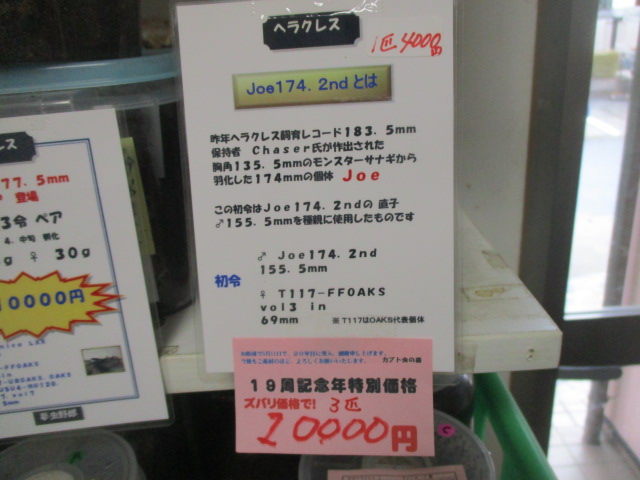 ヘラクレス
1匹 4000円
Joe174.2ndとは
昨年ヘラクレス飼育レコード183.5mm
保持者 Chaser氏が作出された
胸角135.5mmのモンスターサナギから
羽化した174mmの個体 Joe
この初令はJoe174.2ndの 直子
♂155.5mmを種親に使用したものです
♂ Joe174.2nd
155.5mm
初令
♀ T117-FFOAKS
vol3 in
69mm ※T117はOAKS代表個体
カブト虫の森
19周記念年特別価格
ズバリ価格で! 3匹
10000円
77.5mm
登場
3令 ペア
♀ 30g
10000円